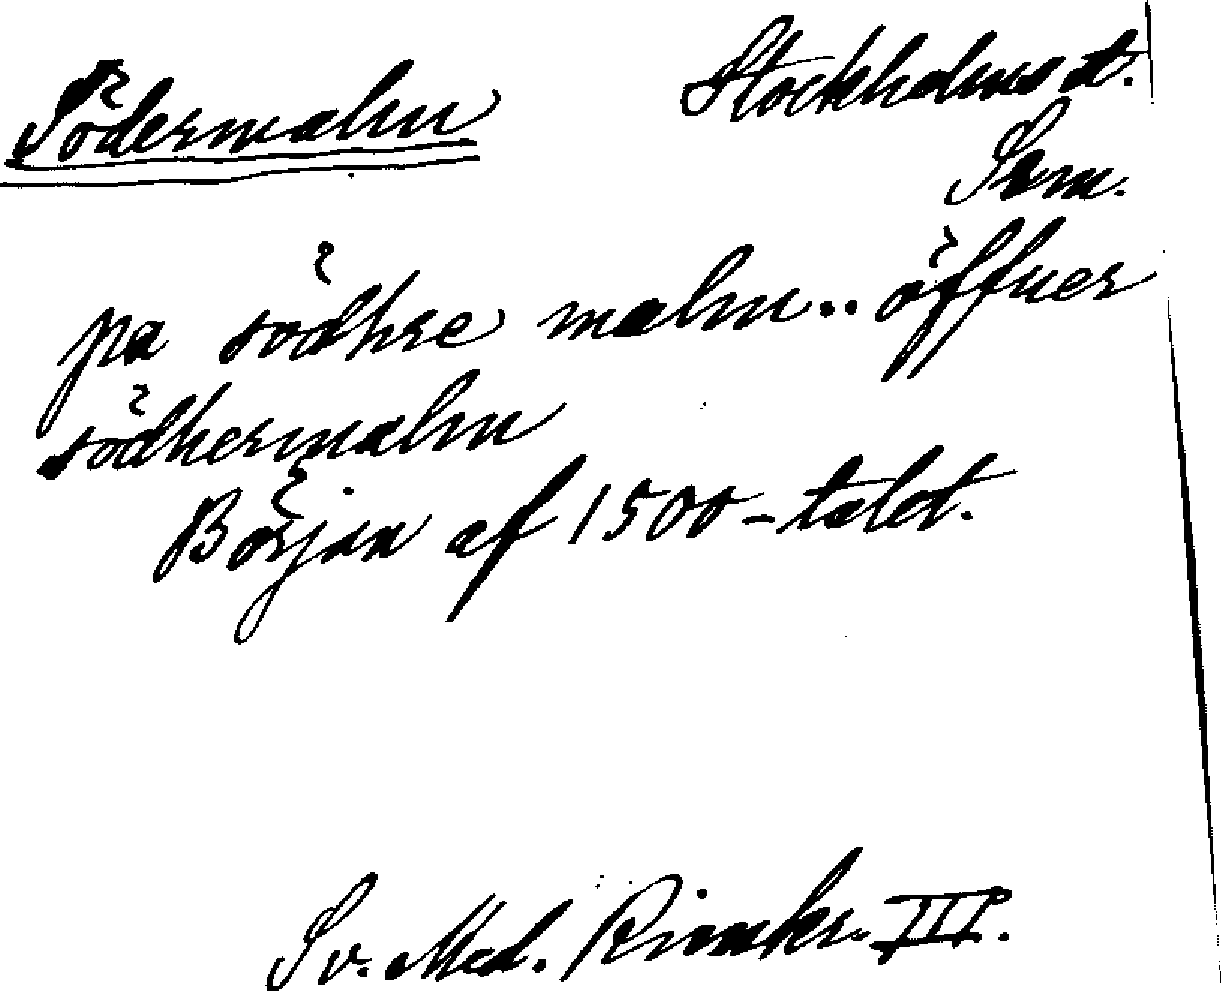 Södermalm
Stockholms st.
Srm.
pa södhre malm .. öffuer
södhermalm
Början af 1500-talet.
Sv. Med. Rimkr. III.